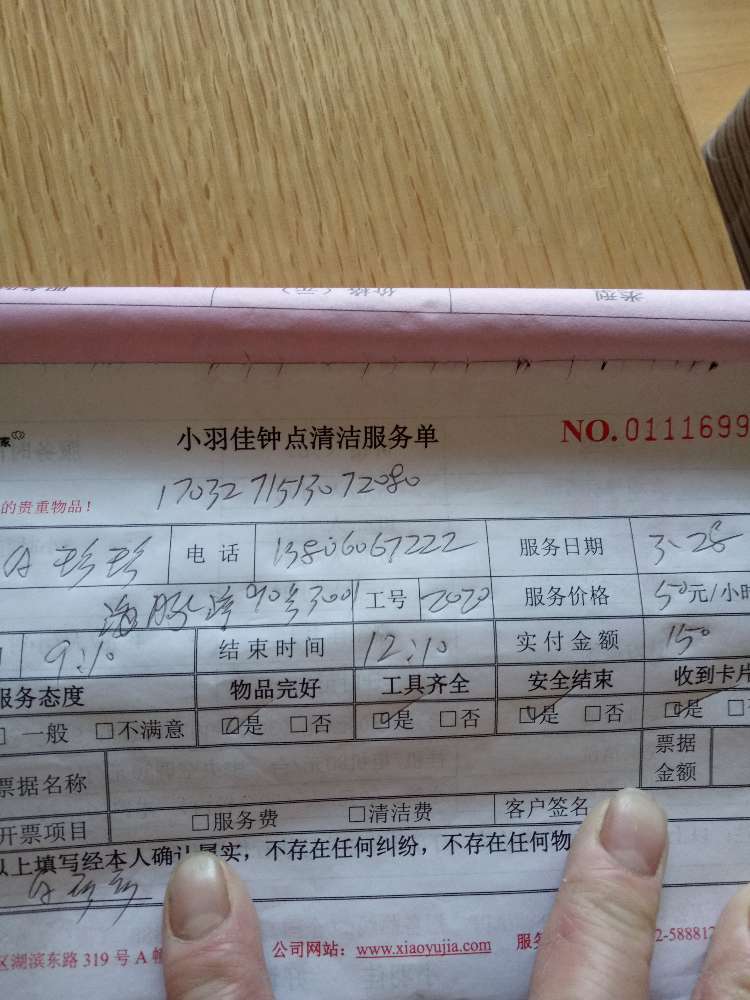 类型 价格（元）
家
小羽佳钟点清洁服务单 NO.0111699
的贵重物品！ 17032715130 72080
珍珍 电话 13806067222 服务日期 3.28
海 路90号3001 工号 2020 服务价格 50元/小时
9:10 结束时间 12:10 实付金额 150
服务态度 物品完好 工具齐全 安全结束 收到卡片
□一般 □不满意 ☑是 □否 ☑是 □否 ☑是 □否 ☑是
票据名称 票据金额
开票项目 □服务费 □清洁费 客户签名
以上填写经本人确认属实，不存在任何纠纷，不存在任何物
区湖滨东路319号A 公司网站：www.xiaoyujia.com 服 2-588812